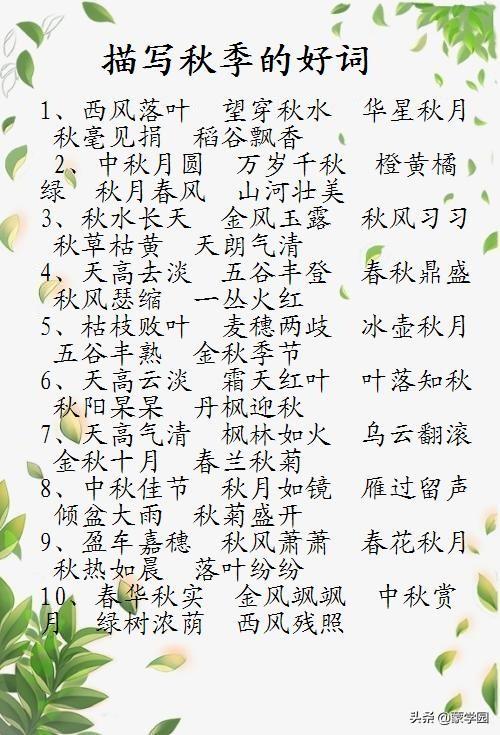 描写秋季的好词
1、西风落叶 望穿秋水 华星秋月
秋毫见捐 稻谷飘香
2、中秋月圆 万岁千秋 橙黄橘
绿 秋月春风 山河壮美
3、秋水长天 金风玉露 秋风习习
秋草枯黄 天朗气清
4、天高去淡 五谷丰登 春秋鼎盛
秋风瑟缩 一丛火红
5、枯枝败叶 麦穗两歧 冰壶秋月
五谷丰熟 金秋季节
6、天高云淡 霜天红叶 叶落知秋
秋阳杲杲 丹枫迎秋
7、天高气清 枫林如火 乌云翻滚
金秋十月 春兰秋菊
8、中秋佳节 秋月如镜 雁过留声
倾盆大雨 秋菊盛开
9、盈车嘉穗 秋风萧萧 春花秋月
秋热如晨 落叶纷纷
10、春华秋实 金风飒飒 中秋赏
月 绿树浓荫 西风残照
头条 @蒙学园